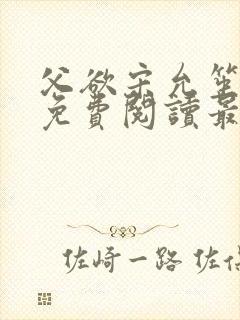 父欲宋允筆
免費閱讀最
佐崎一路 佐佰